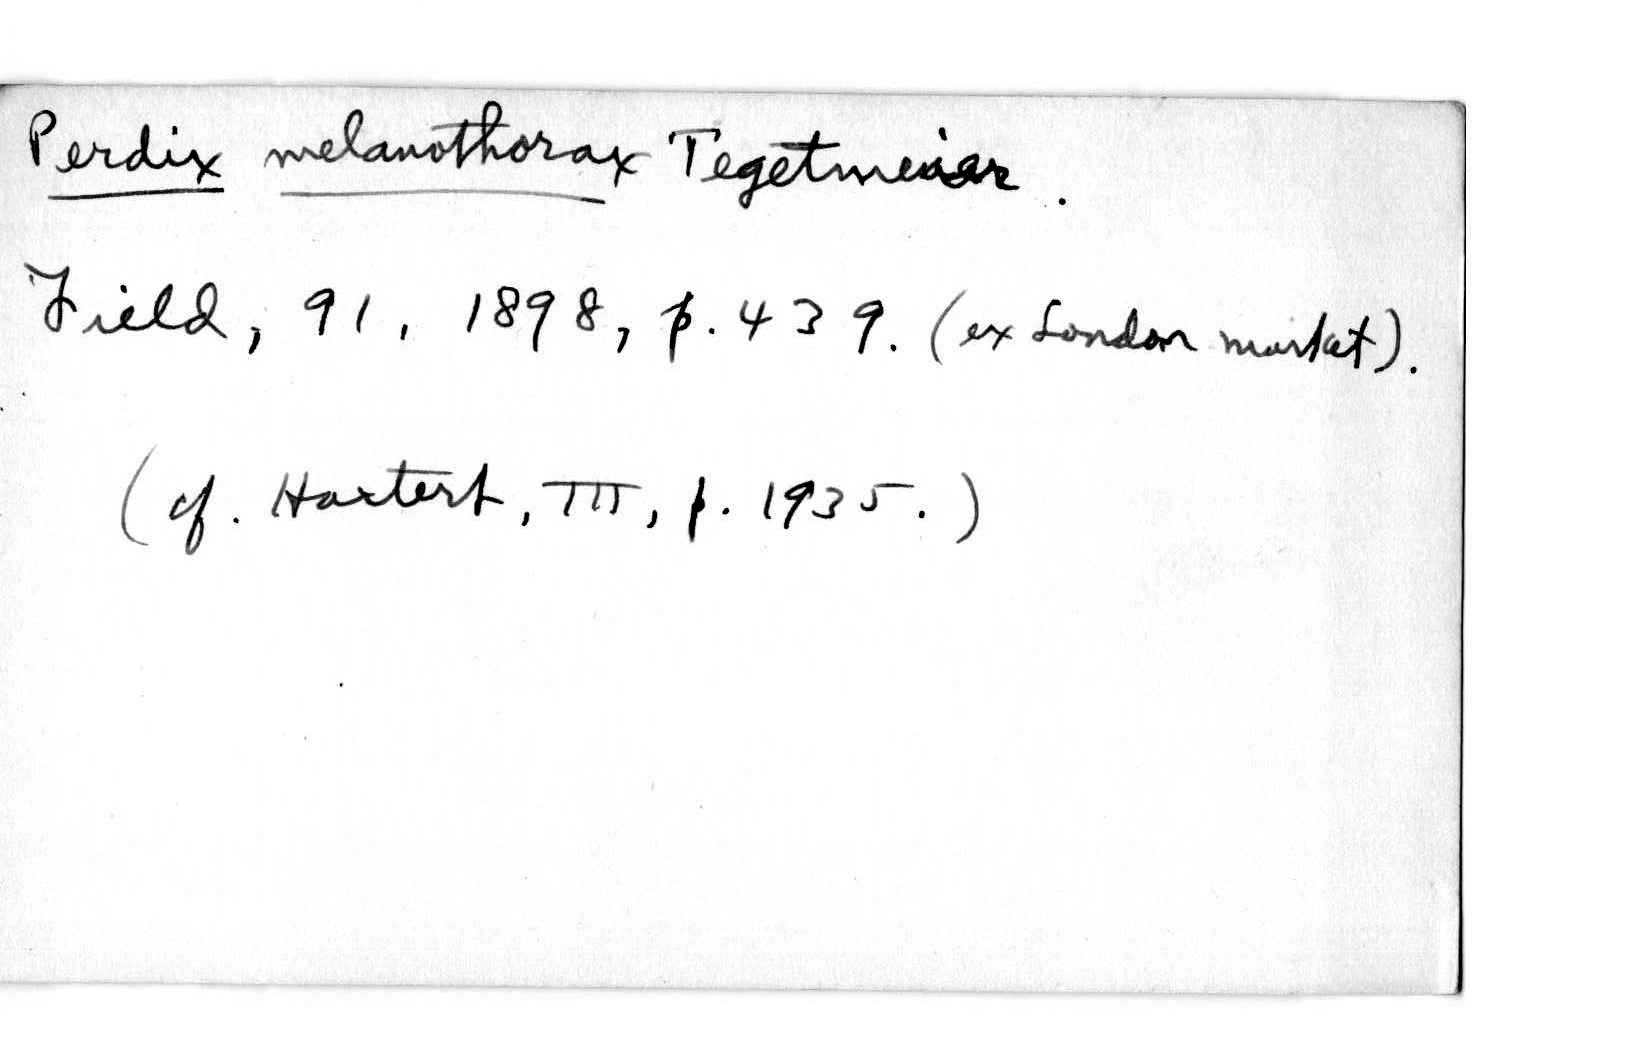 Perdix melanothorax Tegetmeier.
Field, 91, 1898, p. 439. (ex London market).
(cf. Hartert, III, p. 1935.)